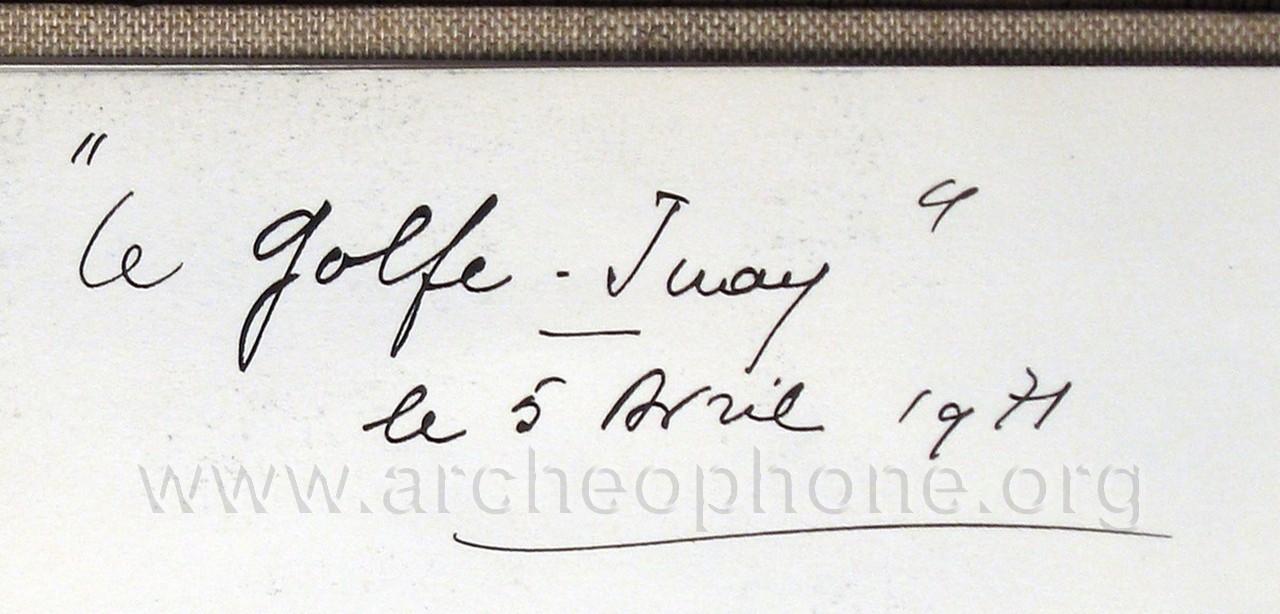 "le Golfe-Juan"
le 5 Avril 1971
www.archeophone.org